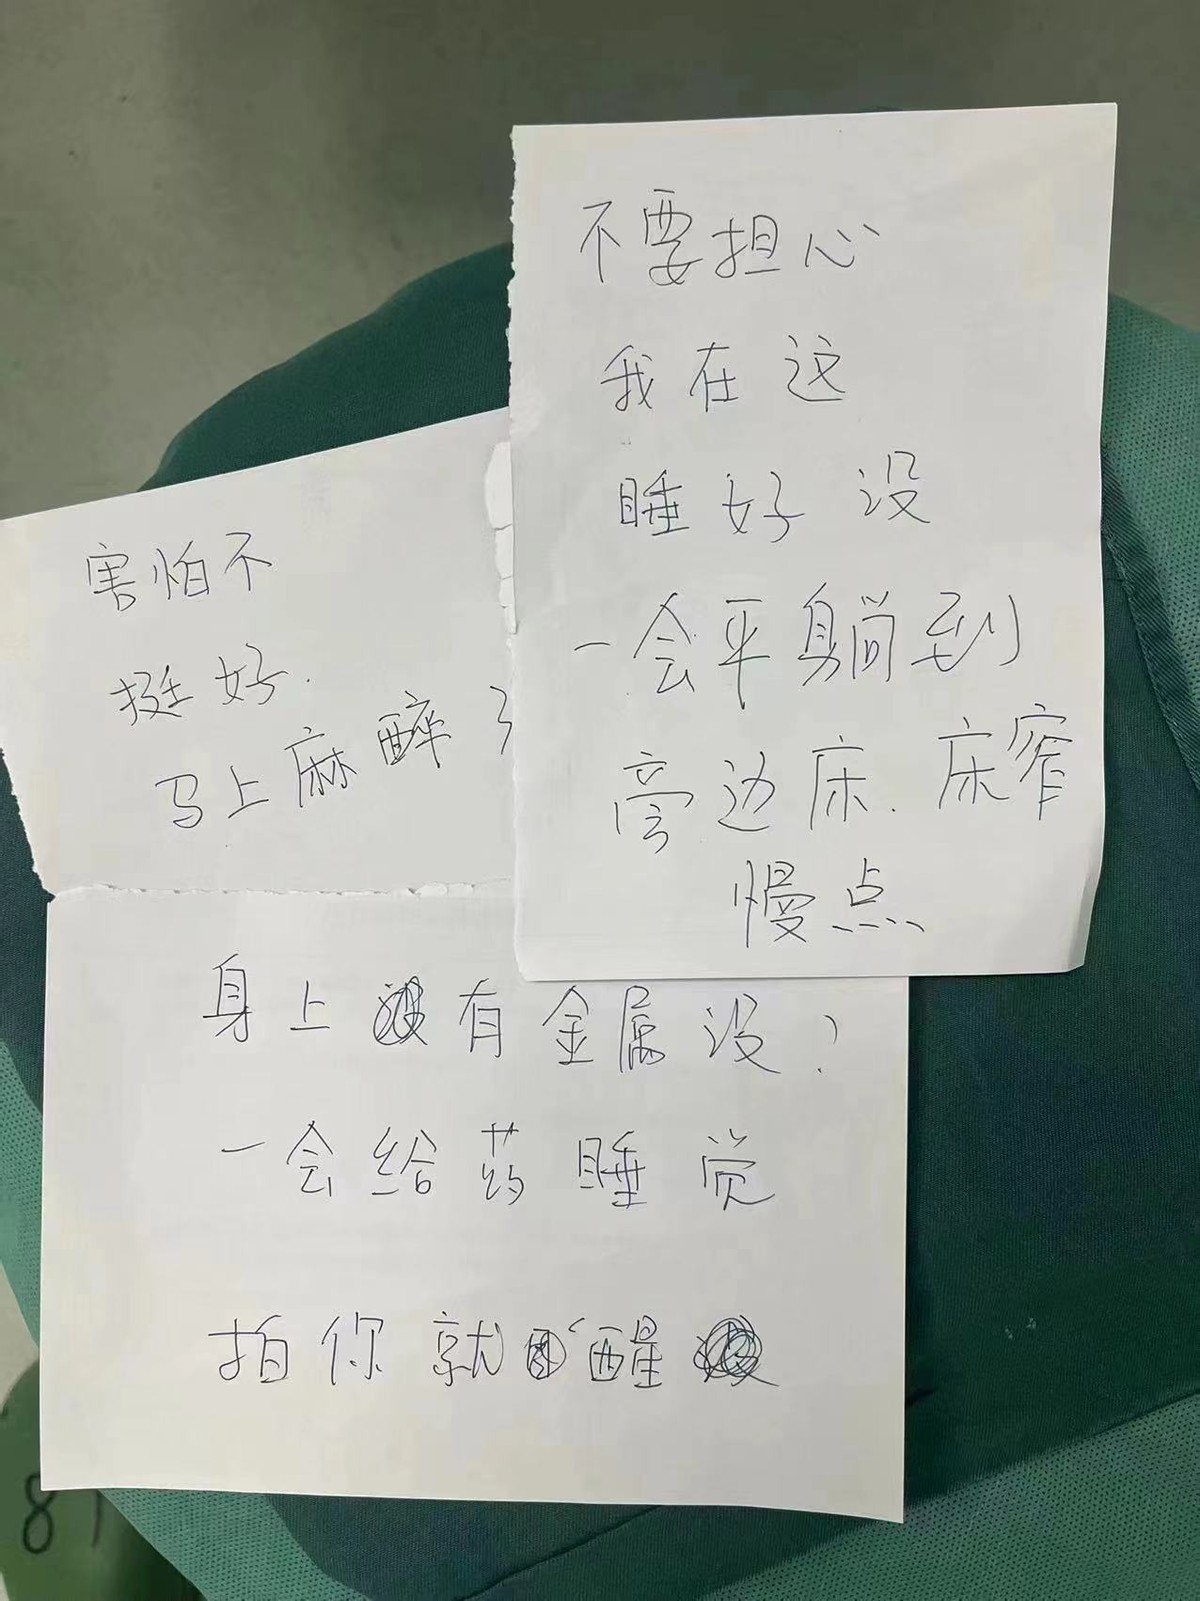 不要担心
我在这
睡好没
一会平身躺到
旁边床.床窄
慢点
害怕不
挺好.
马上麻醉了
身上有金属没?
一会给药睡觉
拍你就醒
8